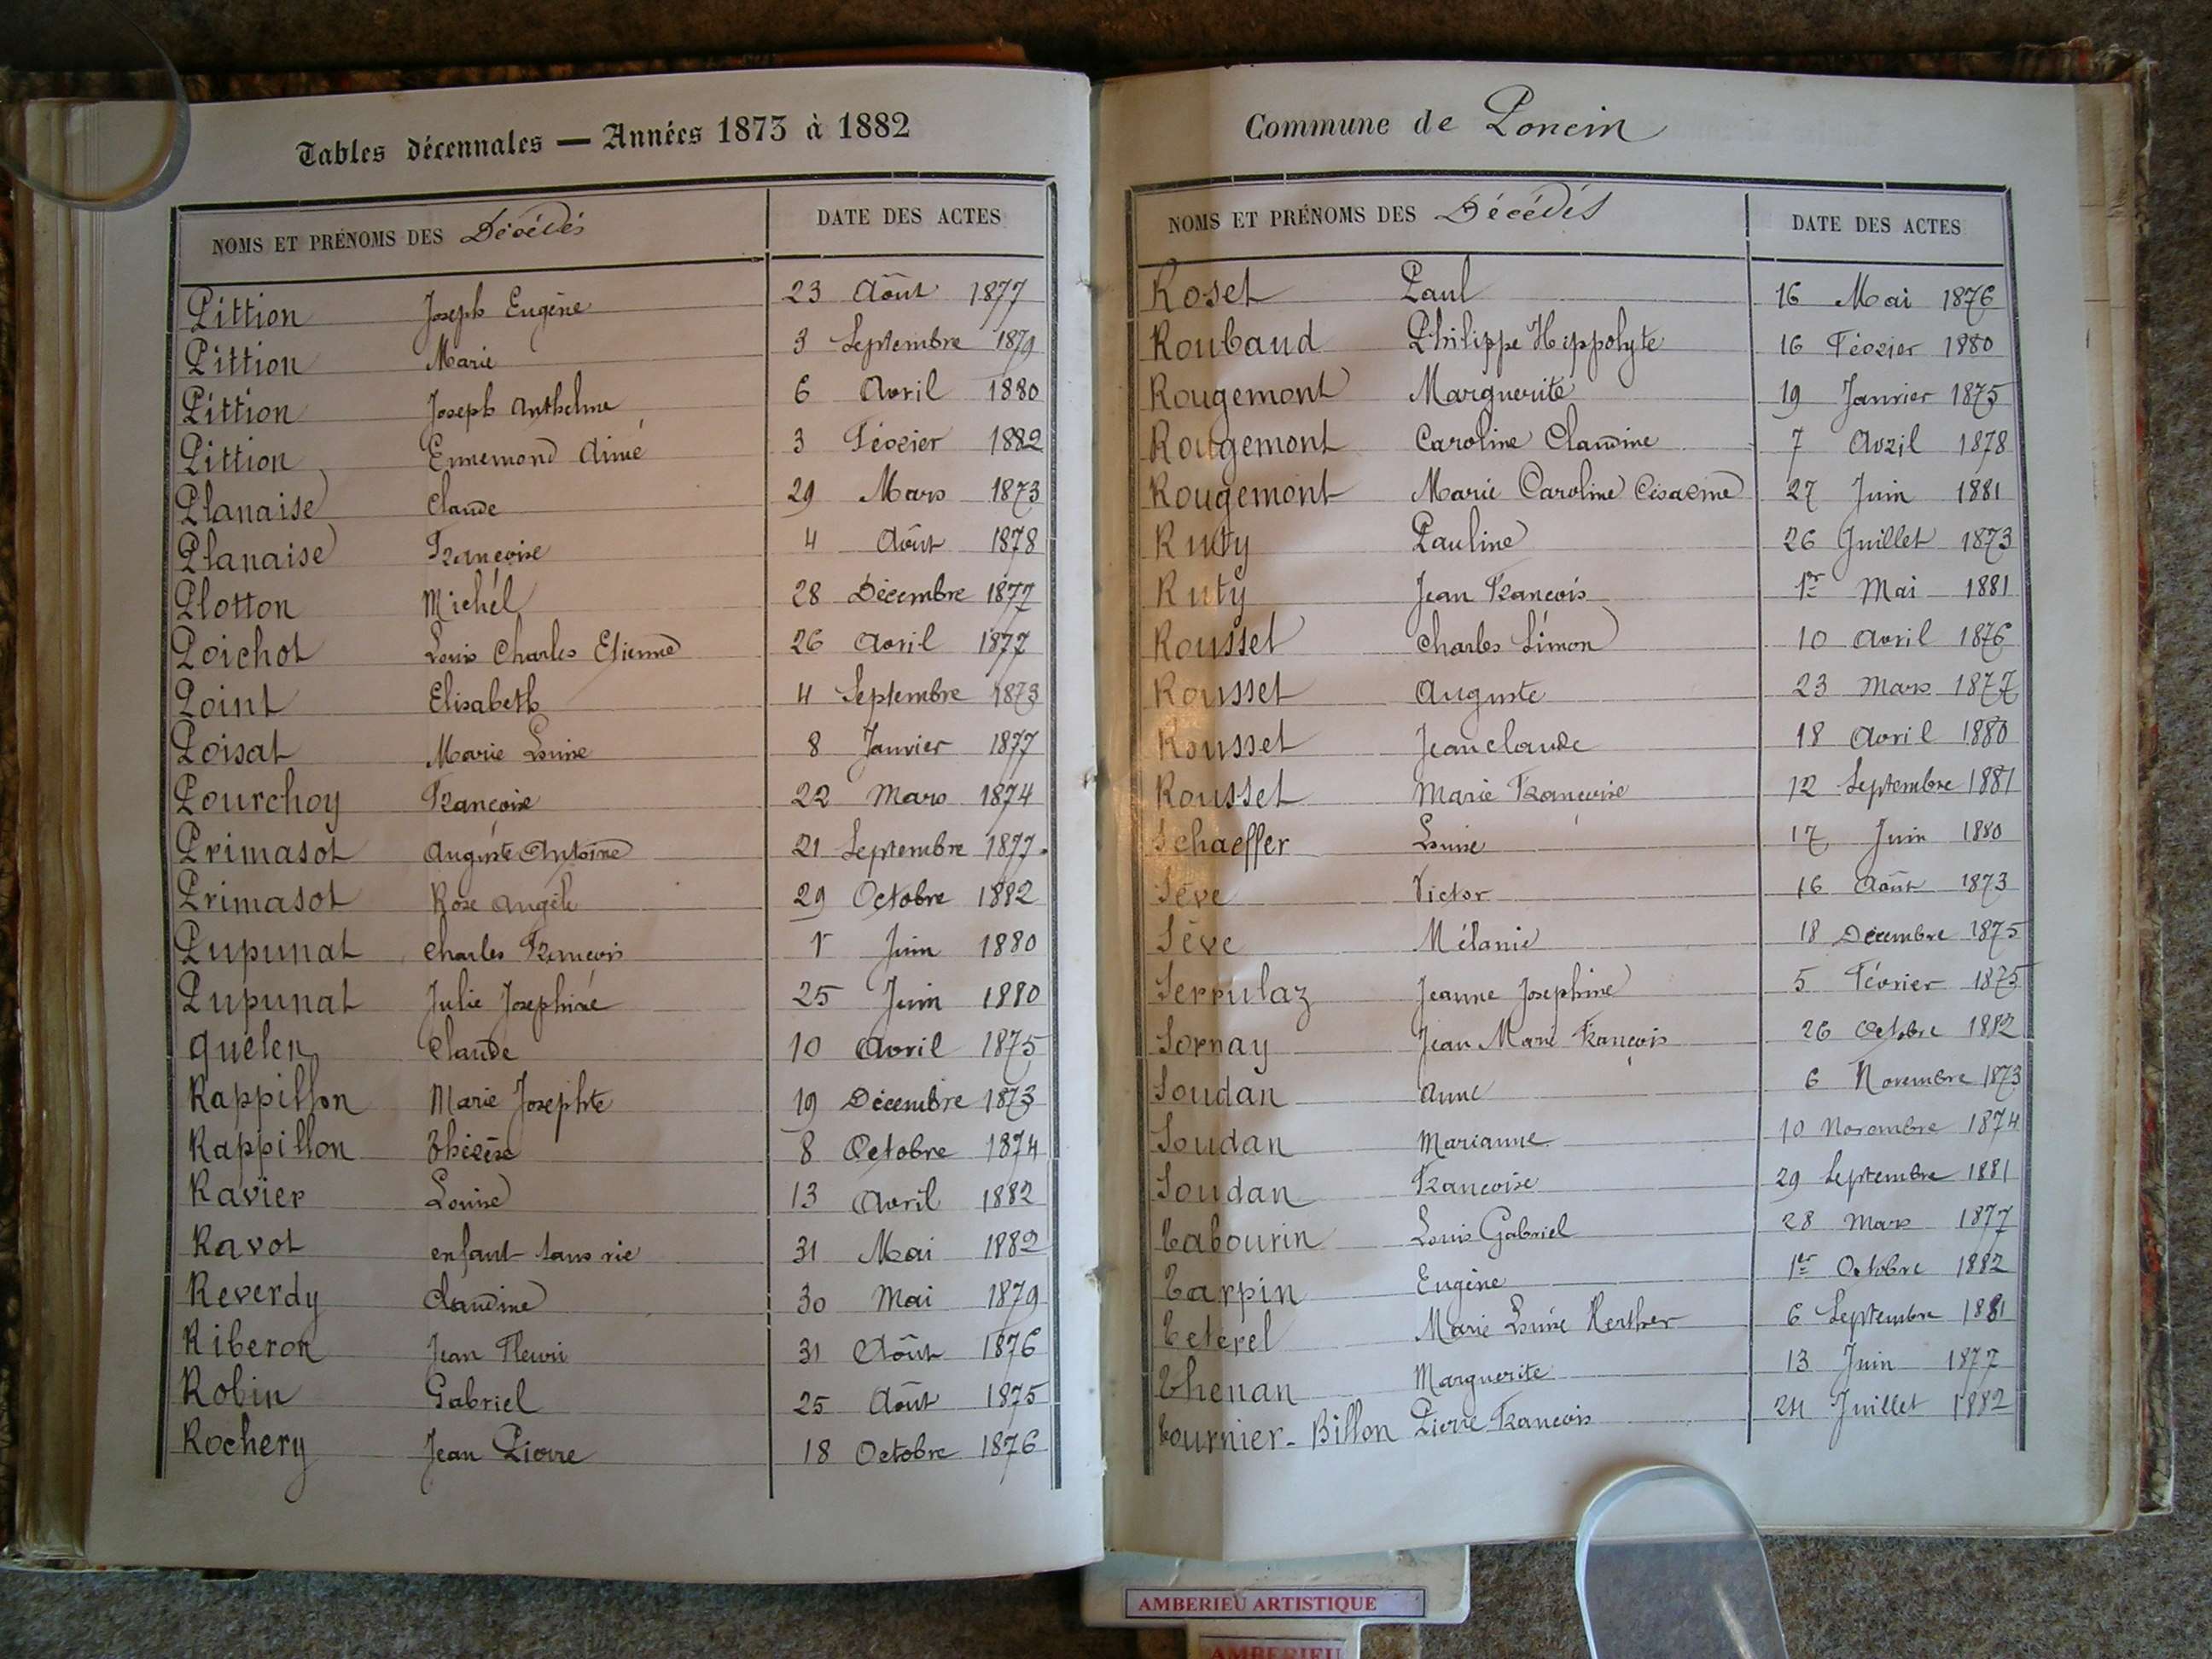 Tables décennales — Années 1873 à 1882
NOMS ET PRÉNOMS DES Décédés DATE DES ACTES
Pittion Joseph Eugène 23 Août 1877
Pittion Marie 3 Septembre 1879
Pittion Joseph Anthelme 6 Avril 1880
Pittion Ennemond Aimé 3 Février 1882
Planaise Claude 29 Mars 1873
Planaise Françoise 4 Août 1878
Plotton Michél 28 Décembre 1877
Poichot Louis Charles Etienne 26 Avril 1877
Point Elisabeth 4 Septembre 1873
Poisat Marie Louise 8 Janvier 1877
Pourchoy Françoise 22 Mars 1874
Primasot Auguste Antoine 21 Septembre 1877
Primasot Rose Angèle 29 Octobre 1882
Pupunat Charles François 1r Juin 1880
Pupunat Julie Josephine 25 Juin 1880
quélen Claude 10 Avril 1875
Rappillon Marie Josephte 19 Décembre 1873
Rappillon Thérèse 8 Octobre 1874
Ravier Louise 13 Avril 1882
Ravot enfant sans vie 31 Mai 1882
Reverdy Claudine 30 Mai 1879
Riberon Jean Fleuri 31 Août 1876
Robin Gabriel 25 Août 1875
Rochery Jean Pierre 18 Octobre 1876
Commune de Poncin
NOMS ET PRÉNOMS DES Décédés DATE DES ACTES
Roset Paul 16 Mai 1876
Roubaud Philippe Hippolyte 16 Février 1880
Rougemont Marguerite 19 Janvier 1875
Rougemont Caroline Claudine 7 Avril 1878
Rougemont Marie Caroline Césarine 27 Juin 1881
Ruty Pauline 26 Juillet 1873
Ruty Jean François 1er Mai 1881
Rousset Charles Simon 10 Avril 1876
Rousset Auguste 23 Mars 1877
Rousset Jean claude 18 Avril 1880
Rousset Marie Françoise 12 Septembre 1881
Schaeffer Louise 17 Juin 1880
Sève Victor 16 Août 1873
Sève Mélanie 18 Décembre 1875
Serrulaz Jeanne Josephine 5 Février 1875
Sornay Jean Marie François 26 Octobre 1882
Soudan Anne 6 Novembre 1873
Soudan Marianne 10 Novembre 1874
Soudan Françoise 29 Septembre 1881
Tabourin Louis Gabriel 28 Mars 1877
Tarpin Eugène 1er Octobre 1882
Teterel Marie Louise 6 Septembre 1881
Thenan Marguerite 13 Juin 1877
Tournier-Billon Pierre François 24 Juillet 1882
AMBERIEU ARTISTIQUE
AMBERIEU